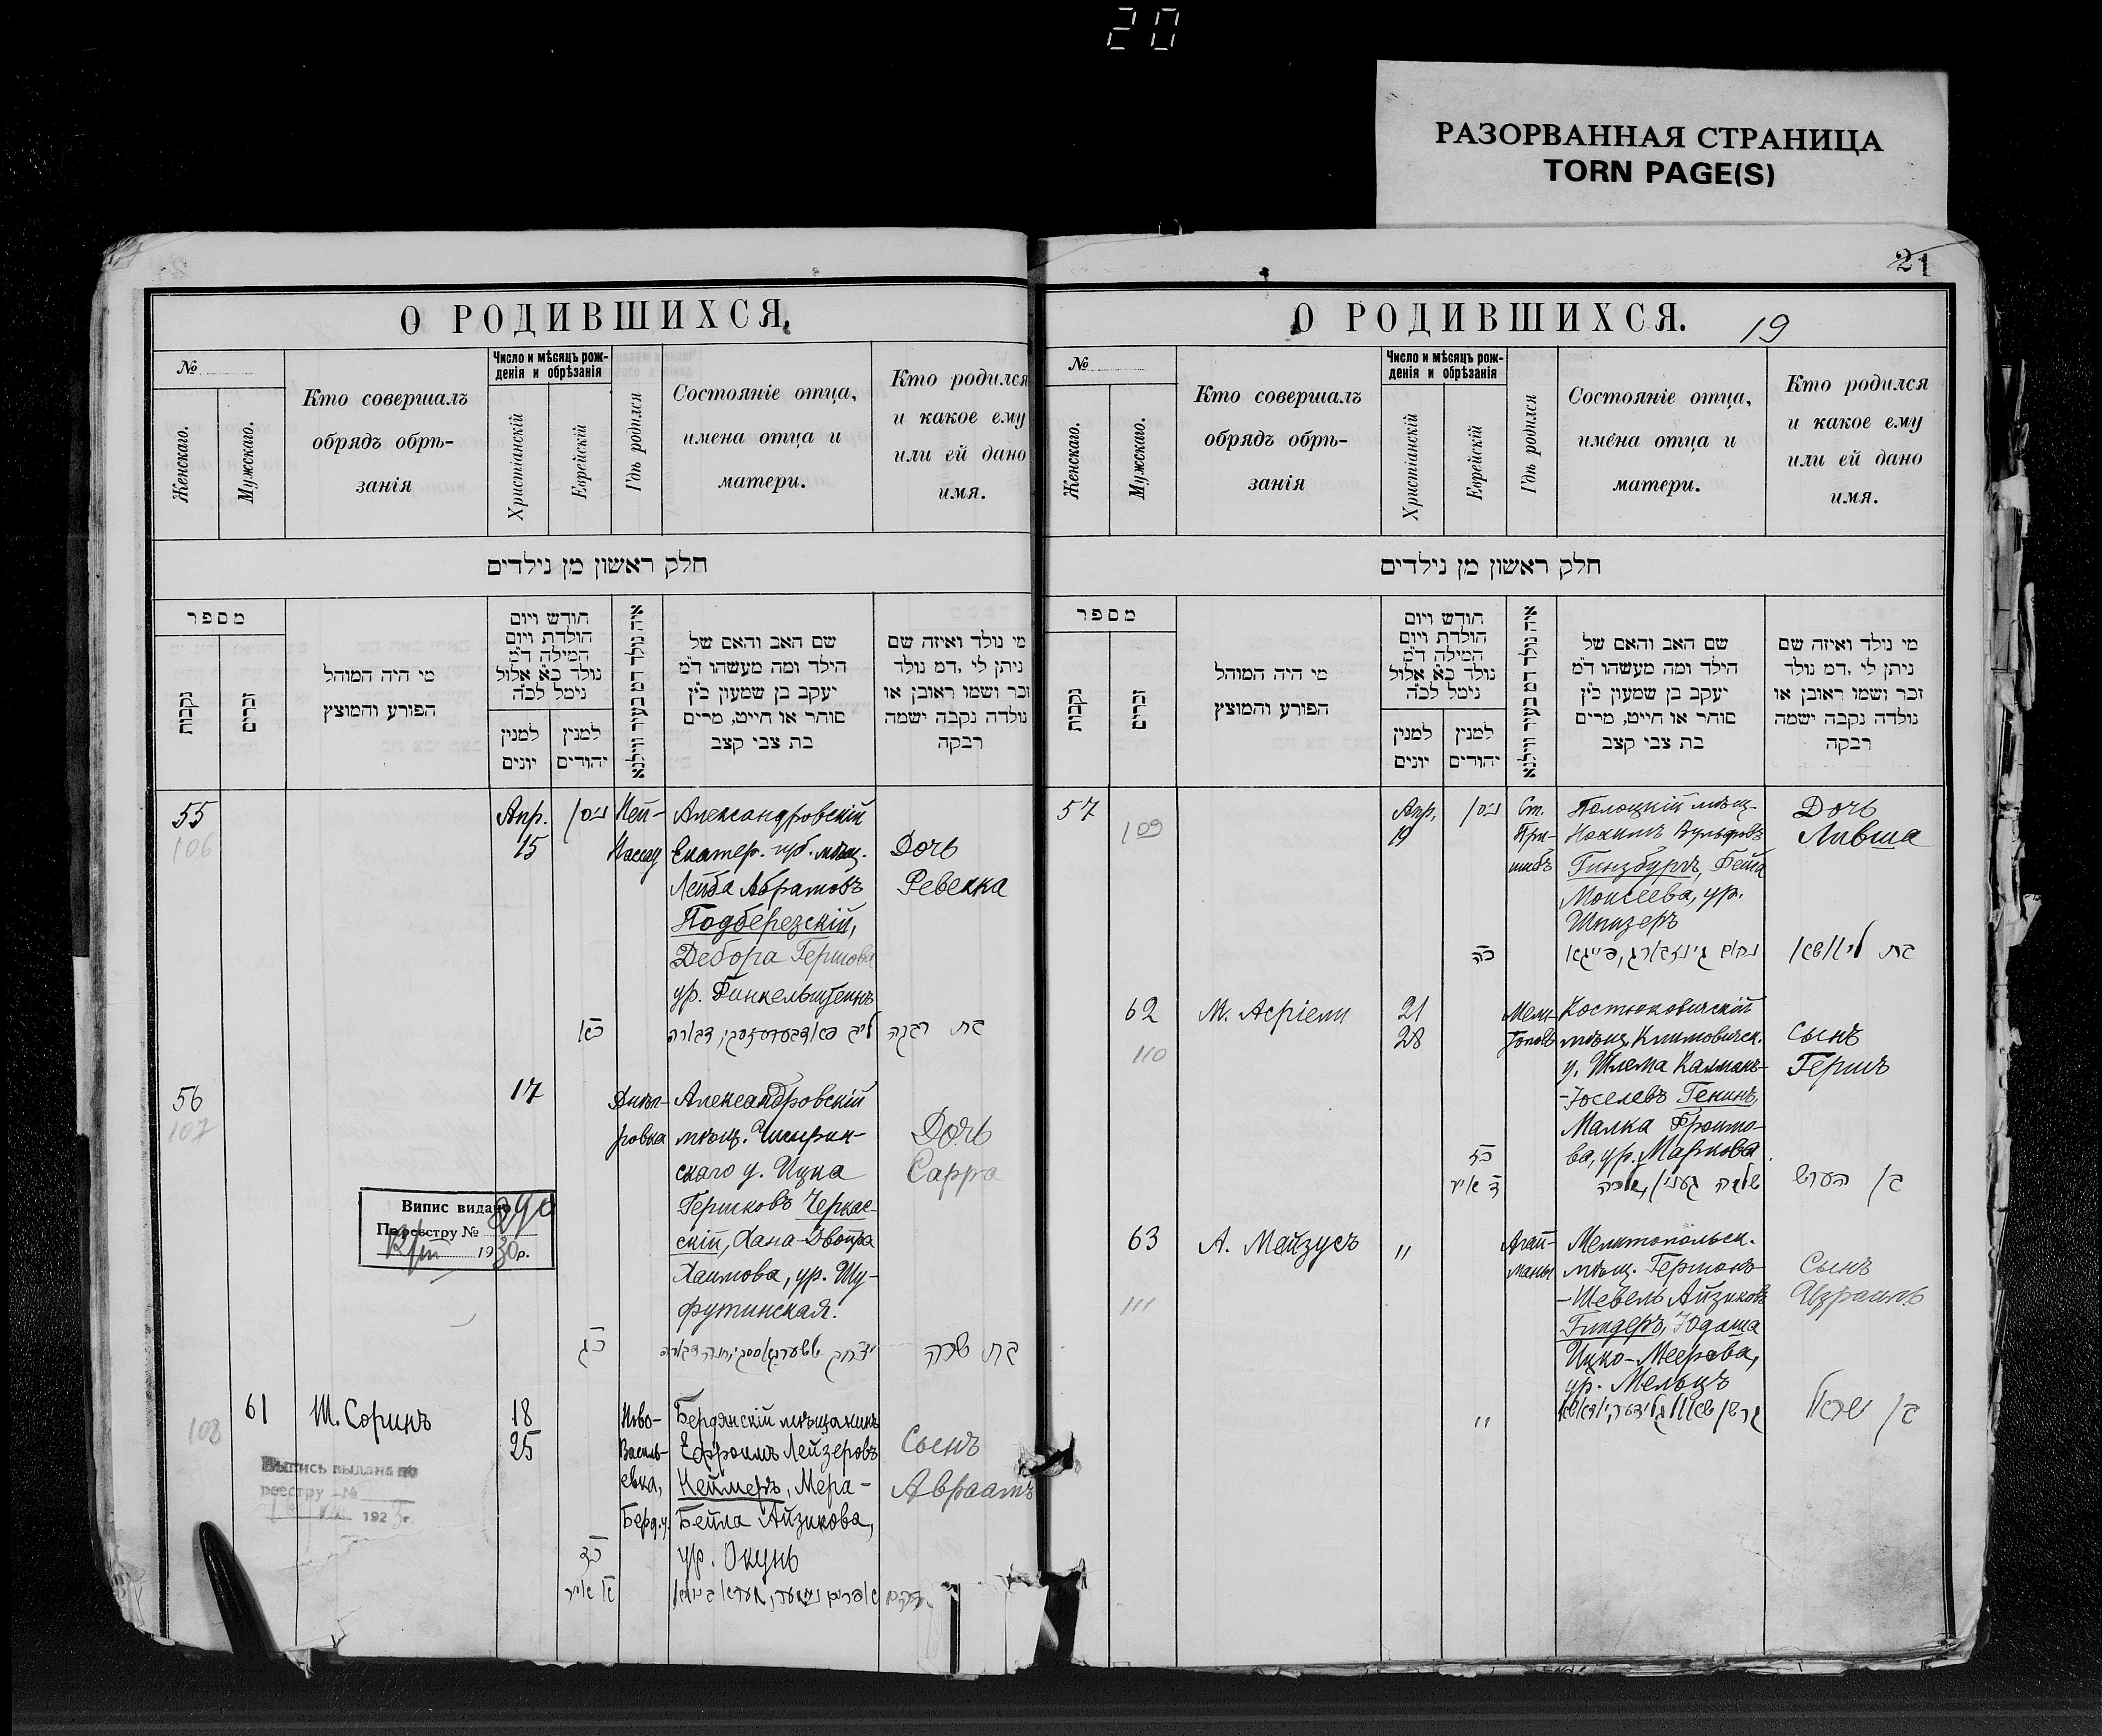 20
РАЗОРВАННАЯ СТРАНИЦА
TORN PAGE(S)
О РОДИВШИХСЯ.
№
Женскаго.
Мужскаго.
Кто совершалъ
обрядъ обрѣ-
занія
Число и мѣсяцъ рож-
денія и обрѣзанія
Христіанскій
Еврейскій
Гдѣ родился
Состояніе отца,
имена отца и
матери.
Кто родился
и какое ему
или ей дано
имя.
חלק ראשון מן נילדים
מספר
נקבות
זכרים
מי היה המוהל
הפורע והמוצץ
חודש ויום
הולדת ויום
המילה ד"מ
נולד כ"א אלול
נימל לכ"ה
למנין
יונים
למנין
יהודים
איה נולד דמ בעיר ווילנא
שם האב והאם של
הילד ומה מעשהו ד"מ
יעקב בן שמעון כ"ץ
סוחר או חייט, מרים
בת צבי קצב
מי נולד ואיזה שם
ניתן לי ,דמ נולד
זכר ושמו ראובן או
נולדה נקבה ישמה
רבקה
55
106
Апр.
15
ניסן
Ней-
Нассау
Александровскій
Екатер. губ. мѣщ.
Лейба Абрамовъ
Подберезскій,
Дебора Гершова
ур. Финкельштейнъ
Дочь
Ревекка
כא
56
107
17
Днѣп-
ровка
Александровскій
мѣщ. Чигирин-
скаго у. Ицка
Гершковъ Черкас-
скій, Хана-Двойра
Хаимова, ур. Шу-
футинская.
Дочь
Сарра
כג
בת שרה
Випис видано
По реєстру № 290
1930 р.
61
108
Ш. Соринъ
18
25
Ново-
Василь-
евка,
Берд. у.
Бердянскій мѣщанинъ
Ефроимъ Лейзеровъ
Неймеръ, Мера-
Бейла Айзикова,
ур. Окунь
Сынъ
Авраамъ
כד
א אייר
Выпись выдана по
реестру №
192 г.
21
О РОДИВШИХСЯ.
19
№
Женскаго.
Мужскаго.
Кто совершалъ
обрядъ обрѣ-
занія
Число и мѣсяцъ рож-
денія и обрѣзанія
Христіанскій
Еврейскій
Гдѣ родился
Состояніе отца,
имена отца и
матери.
Кто родился
и какое ему
или ей дано
имя.
חלק ראשון מן נילדים
מספר
נקבות
זכרים
מי היה המוהל
הפורע והמוצץ
חודש ויום
הולדת ויום
המילה ד"מ
נולד כ"א אלול
נימל לכ"ה
למנין
יונים
למנין
יהודים
איה נולד דמ בעיר ווילנא
שם האב והאם של
הילד ומה מעשהו ד"מ
יעקב בן שמעון כ"ץ
סוחר או חייט, מרים
בת צבי קצב
מי נולד ואיזה שם
ניתן לי ,דמ נולד
זכר ושמו ראובן או
נולדה נקבה ישמה
רבקה
57
109
Апр.
19
ניסן
Ст.
При-
шибъ
Полоцкій мѣщ.
Нохимъ Вульфовъ
Гинзбургъ, Фейга
Моисеева, ур.
Шпизеръ
Дочь
Ливша
כה
נחום גינזבורג, פייגא
62
110
М. Асріели
21
28
Мели-
тополь
Костюковичскій
мѣщ. Климовичск.
у. Шлема Калманъ-
-Іоселевъ Генинъ,
Малка Фроимо-
ва, ур. Маркова
сынъ
Гершъ
כז
ד אייר
שלמה גענין, מלכה
בן הערש
63
111
А. Мейзусъ
"
Агай-
маны
Мелитопольск.
мѣщ. Гершонъ-
-Шевель Айзиковъ
Глидеръ, Юдаша
Ицко-Меерова,
ур. Мельцъ
Сынъ
Израиль
"
בן ישראל